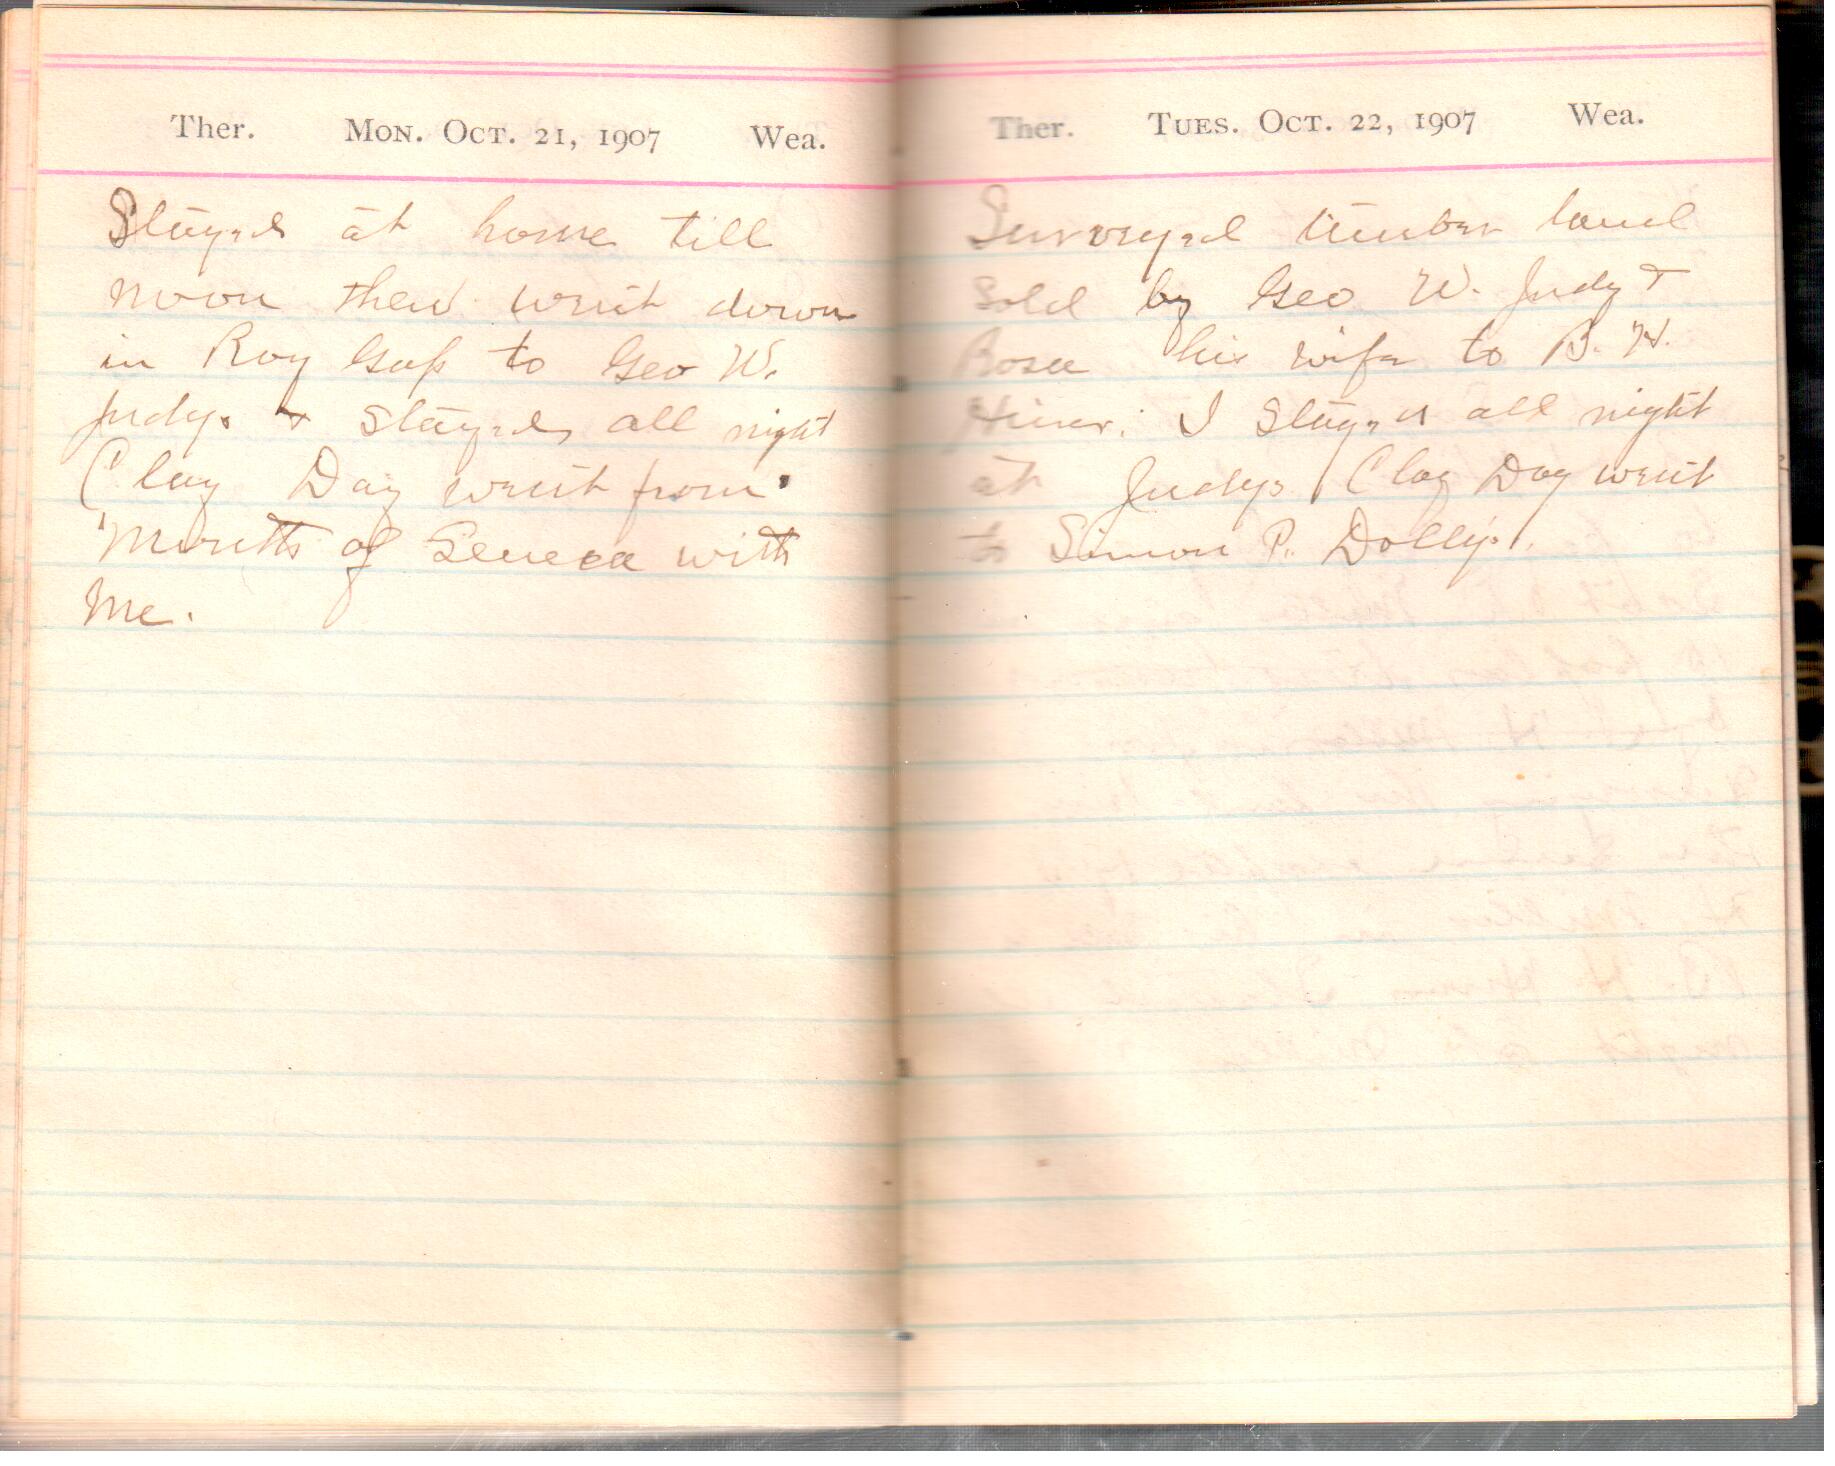 Ther. Mon. Oct. 21, 1907 Wea.
Stayed at home till
noon then went down
in Roy Gap to Geo W.
Judys & stayed all night
Clay Day went from
Mouth of Seneca with
Me.
Ther. Tues. Oct. 22, 1907 Wea.
Surveyed timber land
sold by Geo W. Judy &
Rosa his wife to B. H.
Hiner. I stayed all night
at Judys Clay Day went
to Simon P. Dolly's.